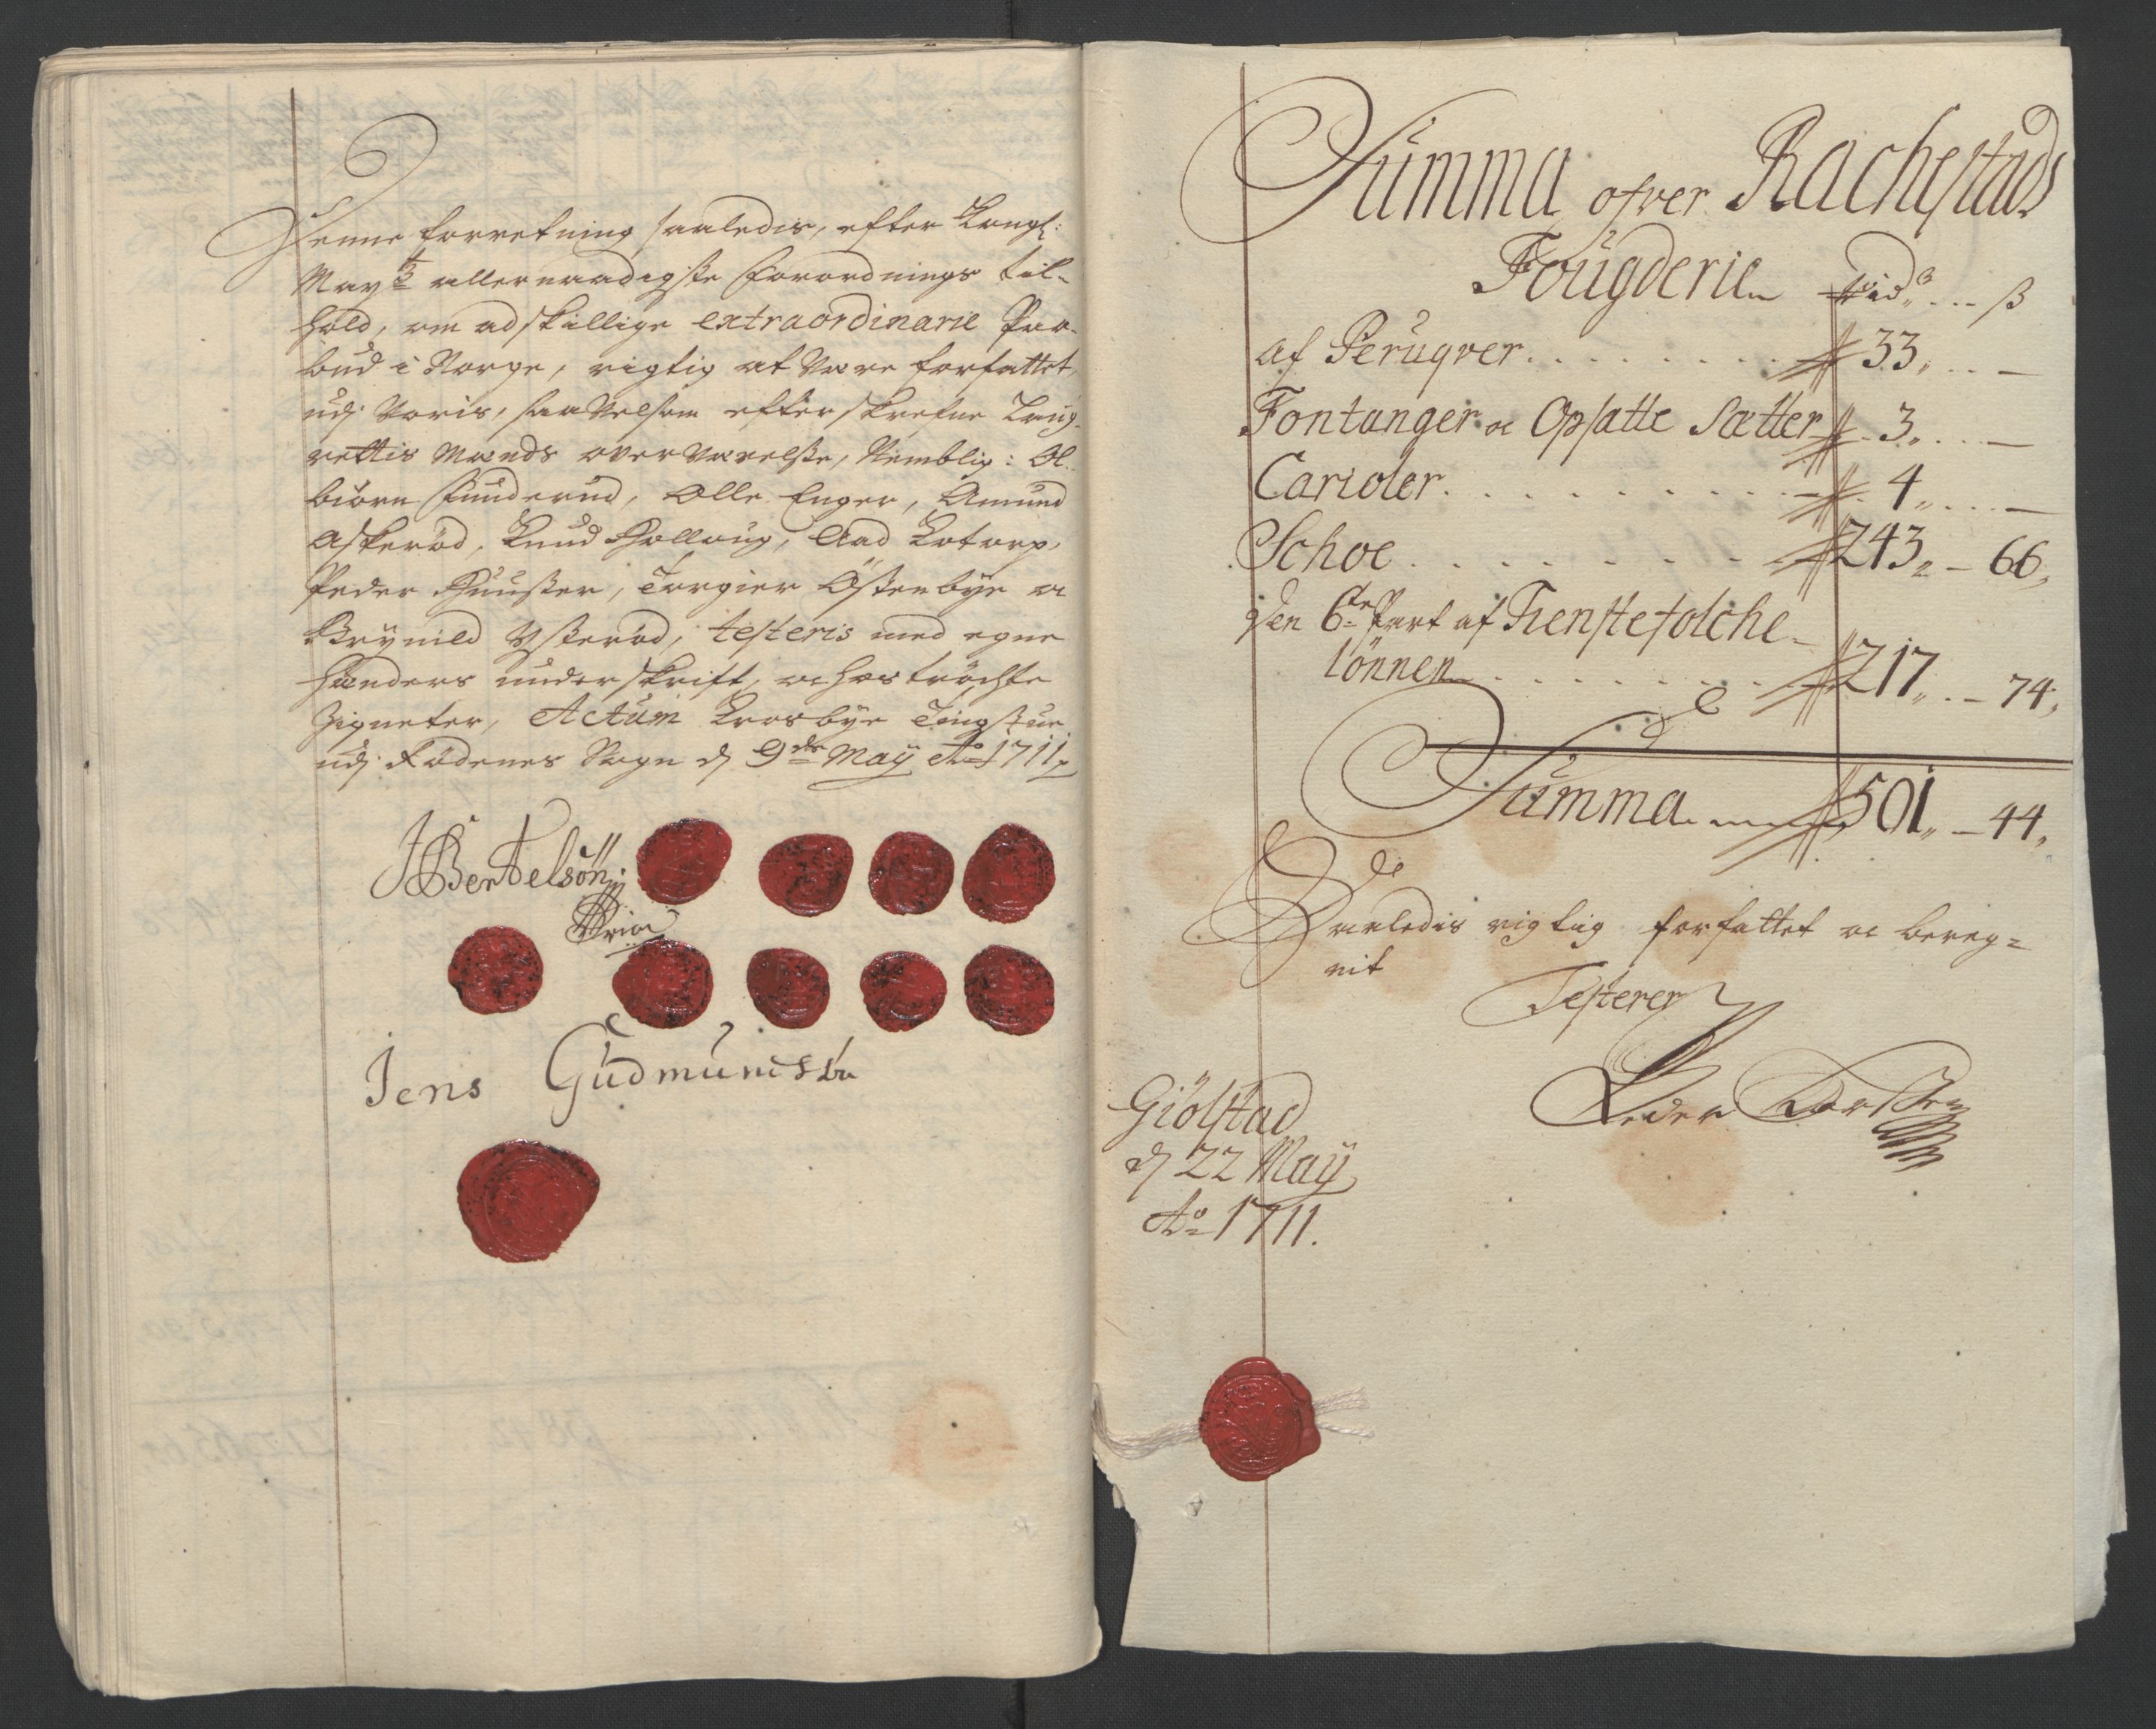 Denne forretning saaledis, efter Kongl:
Mayts allernaadigste forordnings til-
hold, om adskillige extraordinarie Paa-
bud i Norge, rigtig at være forfattet,
udj Voris, saavelsom efterskrefne Laug-
rettis Mænds overværelse, Nemblig: Ol-
biørn Funderud, Olle Enger, Amund
Askerød, Knud Hollaug, Aad Kotorp,
Peder Huuser, Torgier Østenbÿe oc
Brynild Ysterød, testeris med egne
hænders underskrift, oc hostrÿchte
Zigneter, Actum Krosbÿe Tingstue
udj Rødenes Sogn d 9de Maÿ Ao 1711
JBertelsøn
Jens Gudmundsøn
Summa ofver Rachestads
Fougderie Rdr ... ß
af Peruqver . . . . . . . . 33 ... —
Fontanger oc Opsatte Sætter 3 ... —
Carioler . . . . . . . . . 4 ... —
Schoe . . . . . . . . 243 — 66
Den 6te Part af Tienstefolche-
lønnen . . . . . . . . 217 — 74
Summa 501 — 44
Saaledis rigtig forfattet oc bereg=
nit
Testerer
Peder
Giølstad
d 22 Maÿ
Ao 1711.